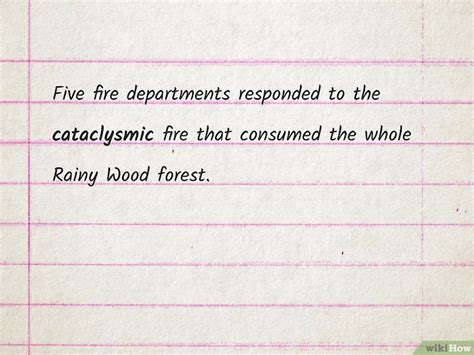 Five fire departments responded to the
cataclysmic fire that consumed the whole
Rainy Wood forest.
wikiHow